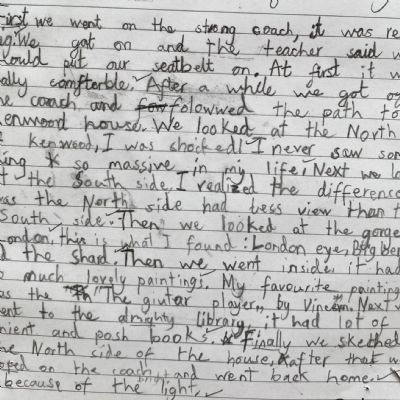 First we went on the strong coach, it was re
ng. We got on and the teacher said w
hould put our seatbelt on. At first it w
ally comfterble. After a while we got of
he coach and folowwed the path to
enwood house. We looked at the North
f Kenwood, I was shocked! I never saw som
hing so massive in my life. Next we lo
t the South side. I realized the difference
was the North side had less view than t
South side. Then we looked at the gorge
ondon, this is what I found: London eye, Big ben
d the Shard. Then we went inside, it had
o much lovely paintings. My favourite painting
as the "The giutar player" by Vincem. Next w
ent to the almighty library, it had lot of
nient and posh books. Finally we sketched
he North side of the house, after that w
oped on the coach and went back home.
because of the light.